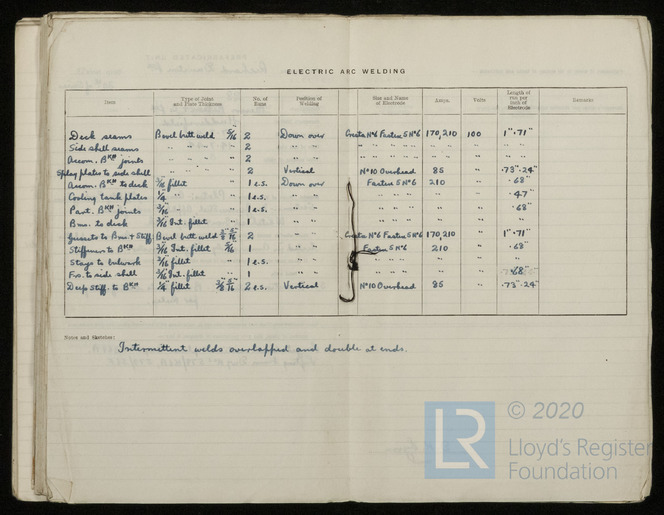 ELECTRIC ARC WELDING
Item Type of Joint and Plate Thickness No. of Runs Position of Welding Size and Name of Electrode Amps. Volts Length of run per inch of Electrode Remarks
Deck seams Bevel butt weld 5/16 2 Down over N°6 Fastex 5 N°6 170,210 100 1"·71"
Side shell seams " " " " 2 " " " " " " "
Accom. BKH joints " " " " 2 " " " " " " "
Splay plates to side shell " " " " 2 Vertical N°10 Overhead 85 " ·73"·24"
Accom. BKH to deck 3/16 fillet " 1 e.s. Down over Fastex 5 N°6 210 " ·68"
Cooling tank plates 1/4 " " 1 e.s. " " " " " " ·47"
Part. BKH joints 3/16 " " 1 e.s. " " " " " " ·68"
Bms. to deck 3/16 Int. fillet " 1 " " " " " " "
Gussets to Bms + Stiff. Bevel butt weld 2 " " N°6 Fastex 5 N°6 170,210 " 1"·71"
Stiffeners to BKH 3/16 Int. fillet 5/16 1 " " Fastex 5 N°6 210 " ·68"
Stays to bulwark 3/16 fillet " 1 e.s. " " " " " " "
Frs. to side shell 3/16 Int. fillet " 1 " " " " " " ·68"
Deep Stiff. to BKH 1/4 fillet 2 e.s. Vertical N°10 Overhead 85 " ·73"·24"
Notes and Sketches:
Intermittent welds overlapped and double at ends.
LR
© 2020
Lloyd's Register
Foundation